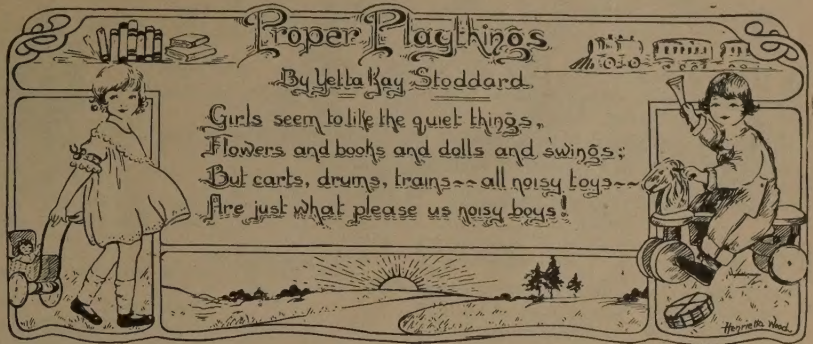 Proper Playthings
By Yetta Kay Stoddard
Girls seem to like the quiet things,
Flowers and books and dolls and swings;
But carts, drums, trains--all noisy toys--
Are just what please us noisy boys!
Henrietta Wood